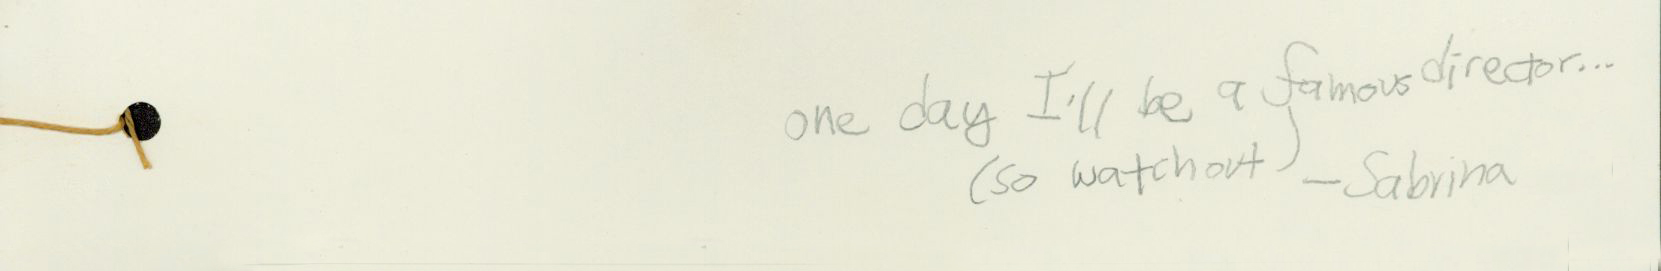 one day I'll be a famous director...
(so watchout) -Sabrina